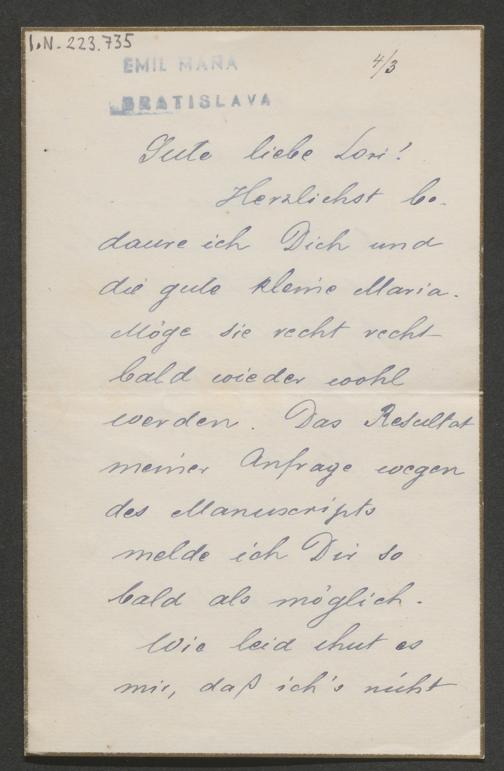 I.N. 223.735
EMIL MAŘA
4/3
BRATISLAVA
Gute liebe Lori!
Herzlichst be-
daure ich Dich und
die gute kleine Maria.
Möge sie recht recht
bald wieder wohl
werden. Das Resultat
meiner Anfrage wegen
des Manuscripts
melde ich Dir so
bald als möglich.
Wie leid thut es
mir, daß ich's nicht